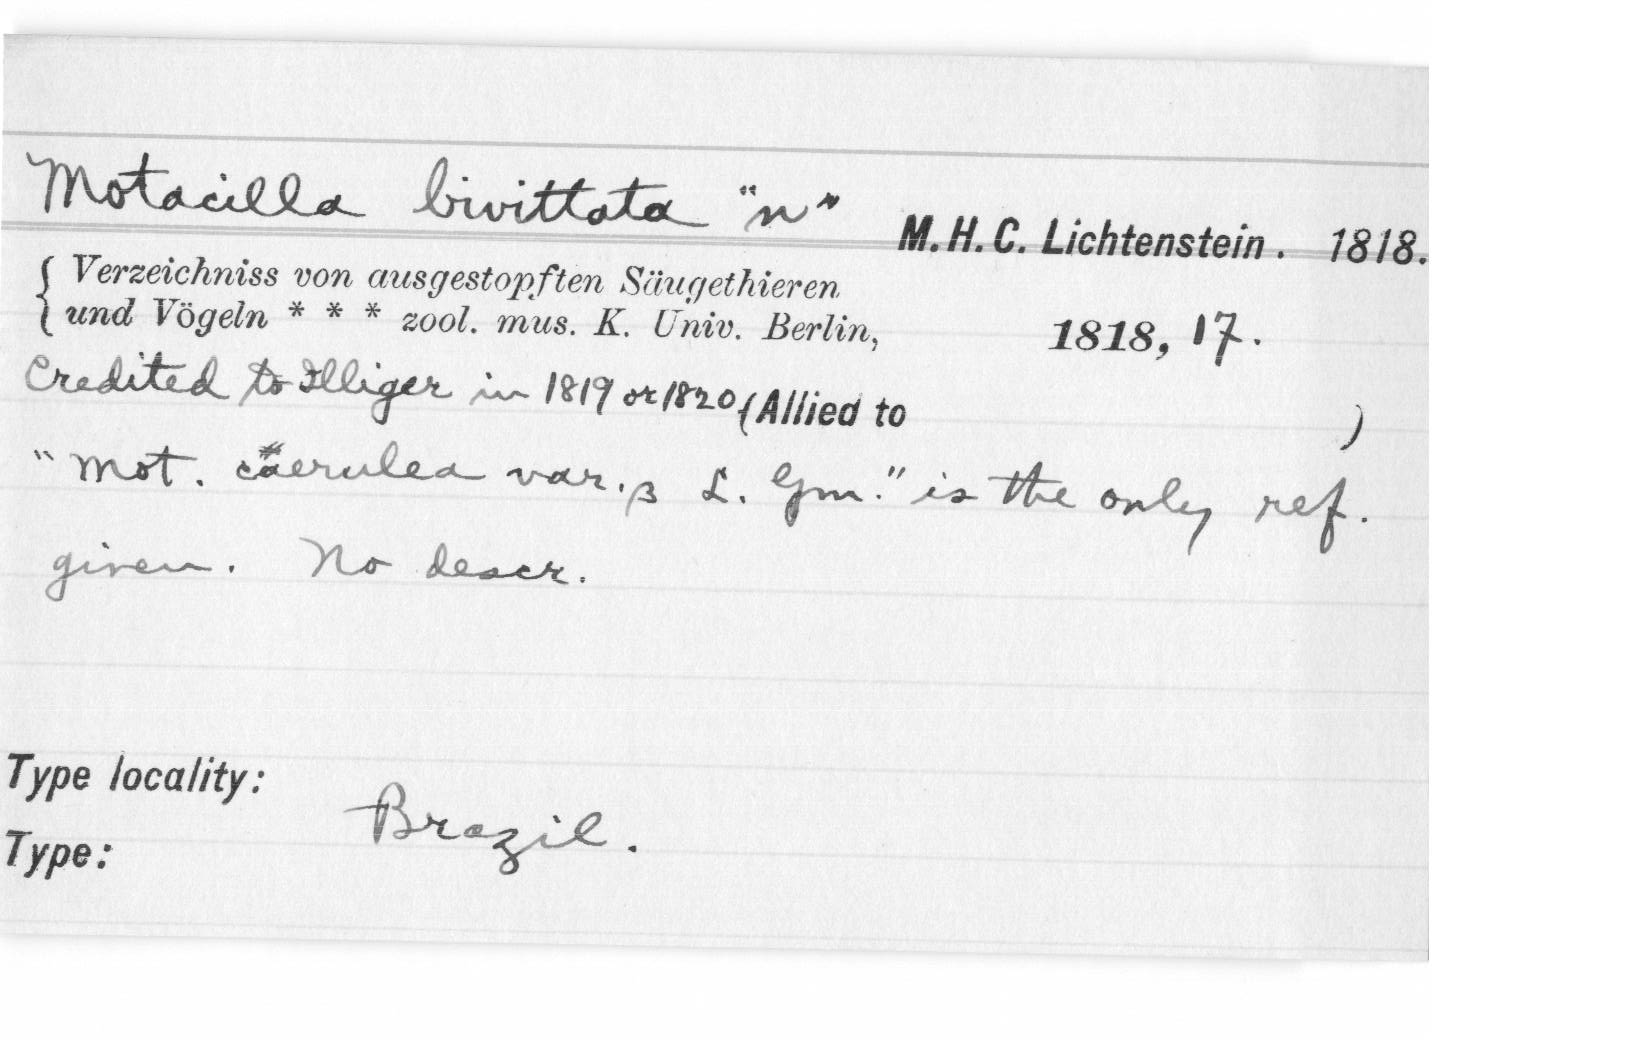 Motacilla bivittata "n" M. H. C. Lichtenstein. 1818.
{ Verzeichniss von ausgestopften Säugethieren
und Vögeln * * * zool. mus. K. Univ. Berlin, 1818, 17.
Credited to Illiger in 1819 or 1820 (Allied to )
"Mot. caerulea var. β L. Gm." is the only ref.
given. No descr.
Type locality:
Brazil.
Type: